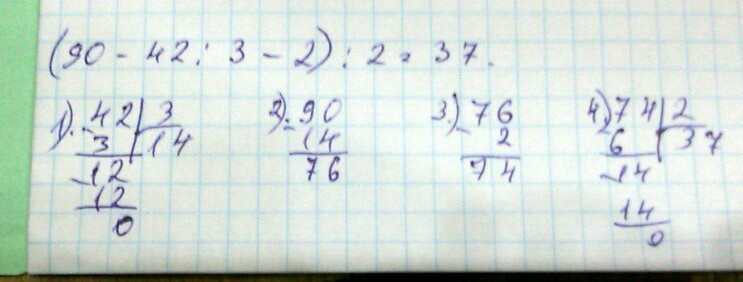 (90 - 42 : 3 - 2) : 2 = 37.
1). 42 | 3
3 14
-12
12
0
2). -90
14
76
3.) -76
2
74
4.) 74 | 2
6 37
-14
14
0